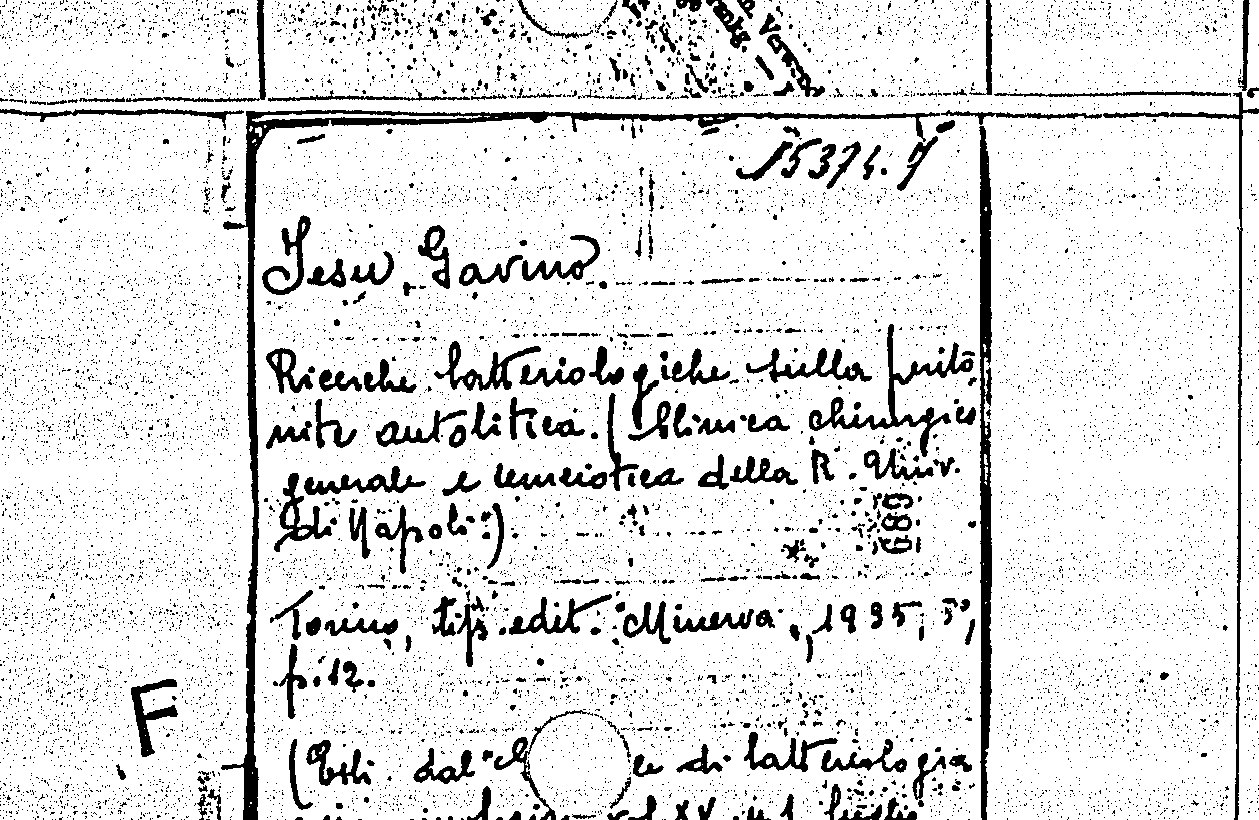 n. Verw
15374. 7
Iesu, Gavino.
Ricerche batteriologiche sulla perito
nite autolitica. (Clinica chirurgica
generale e semeiotica della R. Univ.
di Napoli.)
689
Torino, tip. edit. Minerva, 1935, 8°,
p. 12.
F
(Estr. dal di batteriologia
vol. XV n. 1 luglio